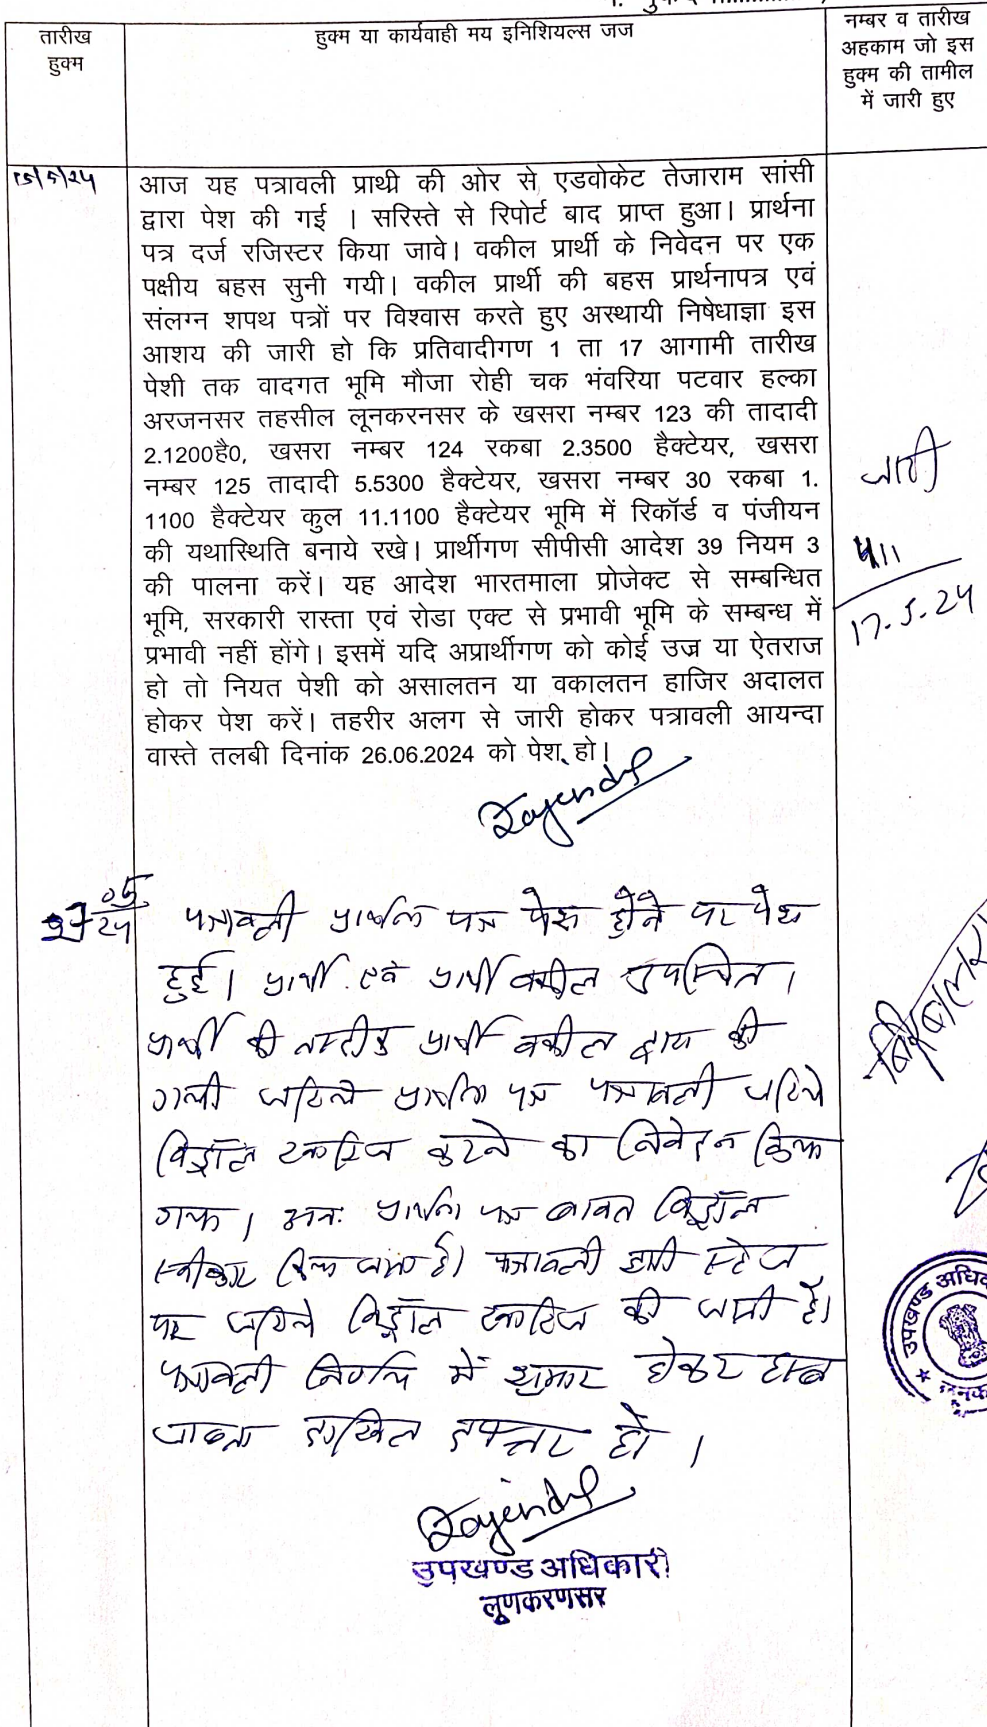 तारीख
हुक्म
हुक्म या कार्यवाही मय इनिशियल्स जज
नम्बर व तारीख
अहकाम जो इस
हुक्म की तामील
में जारी हुए
15/5/24
आज यह पत्रावली प्राथी की ओर से एडवोकेट तेजाराम सांसी
द्वारा पेश की गई । सरिस्ते से रिपोर्ट बाद प्राप्त हुआ। प्रार्थना
पत्र दर्ज रजिस्टर किया जावे। वकील प्रार्थी के निवेदन पर एक
पक्षीय बहस सुनी गयी। वकील प्रार्थी की बहस प्रार्थनापत्र एवं
संलग्न शपथ पत्रों पर विश्वास करते हुए अस्थायी निषेधाज्ञा इस
आशय की जारी हो कि प्रतिवादीगण 1 ता 17 आगामी तारीख
पेशी तक वादगत भूमि मौजा रोही चक भंवरिया पटवार हल्का
अरजनसर तहसील लूनकरनसर के खसरा नम्बर 123 की तादादी
2.1200है0, खसरा नम्बर 124 रकबा 2.3500 हैक्टेयर, खसरा
नम्बर 125 तादादी 5.5300 हैक्टेयर, खसरा नम्बर 30 रकबा 1.
1100 हैक्टेयर कुल 11.1100 हैक्टेयर भूमि में रिकॉर्ड व पंजीयन
की यथास्थिति बनाये रखे। प्रार्थीगण सीपीसी आदेश 39 नियम 3
की पालना करें। यह आदेश भारतमाला प्रोजेक्ट से सम्बन्धित
भूमि, सरकारी रास्ता एवं रोडा एक्ट से प्रभावी भूमि के सम्बन्ध में
प्रभावी नहीं होंगे। इसमें यदि अप्रार्थीगण को कोई उज्र या ऐतराज
हो तो नियत पेशी को असालतन या वकालतन हाजिर अदालत
होकर पेश करें। तहरीर अलग से जारी होकर पत्रावली आयन्दा
वास्ते तलबी दिनांक 26.06.2024 को पेश हो।
जारी
17.5.24
Rajendra
पत्रावली प्रार्थना पत्र पेश होने पर पेश
हुई। प्रार्थी एवं प्रार्थी वकील उपस्थित।
प्रार्थी की तस्दीक प्रार्थी वकील द्वारा की
गयी जरिये प्रार्थना पत्र पत्रावली जरिये
विड्रॉल खारिज करने का निवेदन किया
गया। अतः प्रार्थना पत्र बाबत विड्रॉल
स्वीकार किया जाता है। पत्रावली इसी स्टेज
पर जरिये विड्रॉल खारिज की जाती है।
पत्रावली निर्णय में शुमार होकर बाद
जाब्ता दाखिल दफ्तर हो।
Rajendra
उपखण्ड अधिकारी
लूणकरणसर
उपखण्ड अधिक